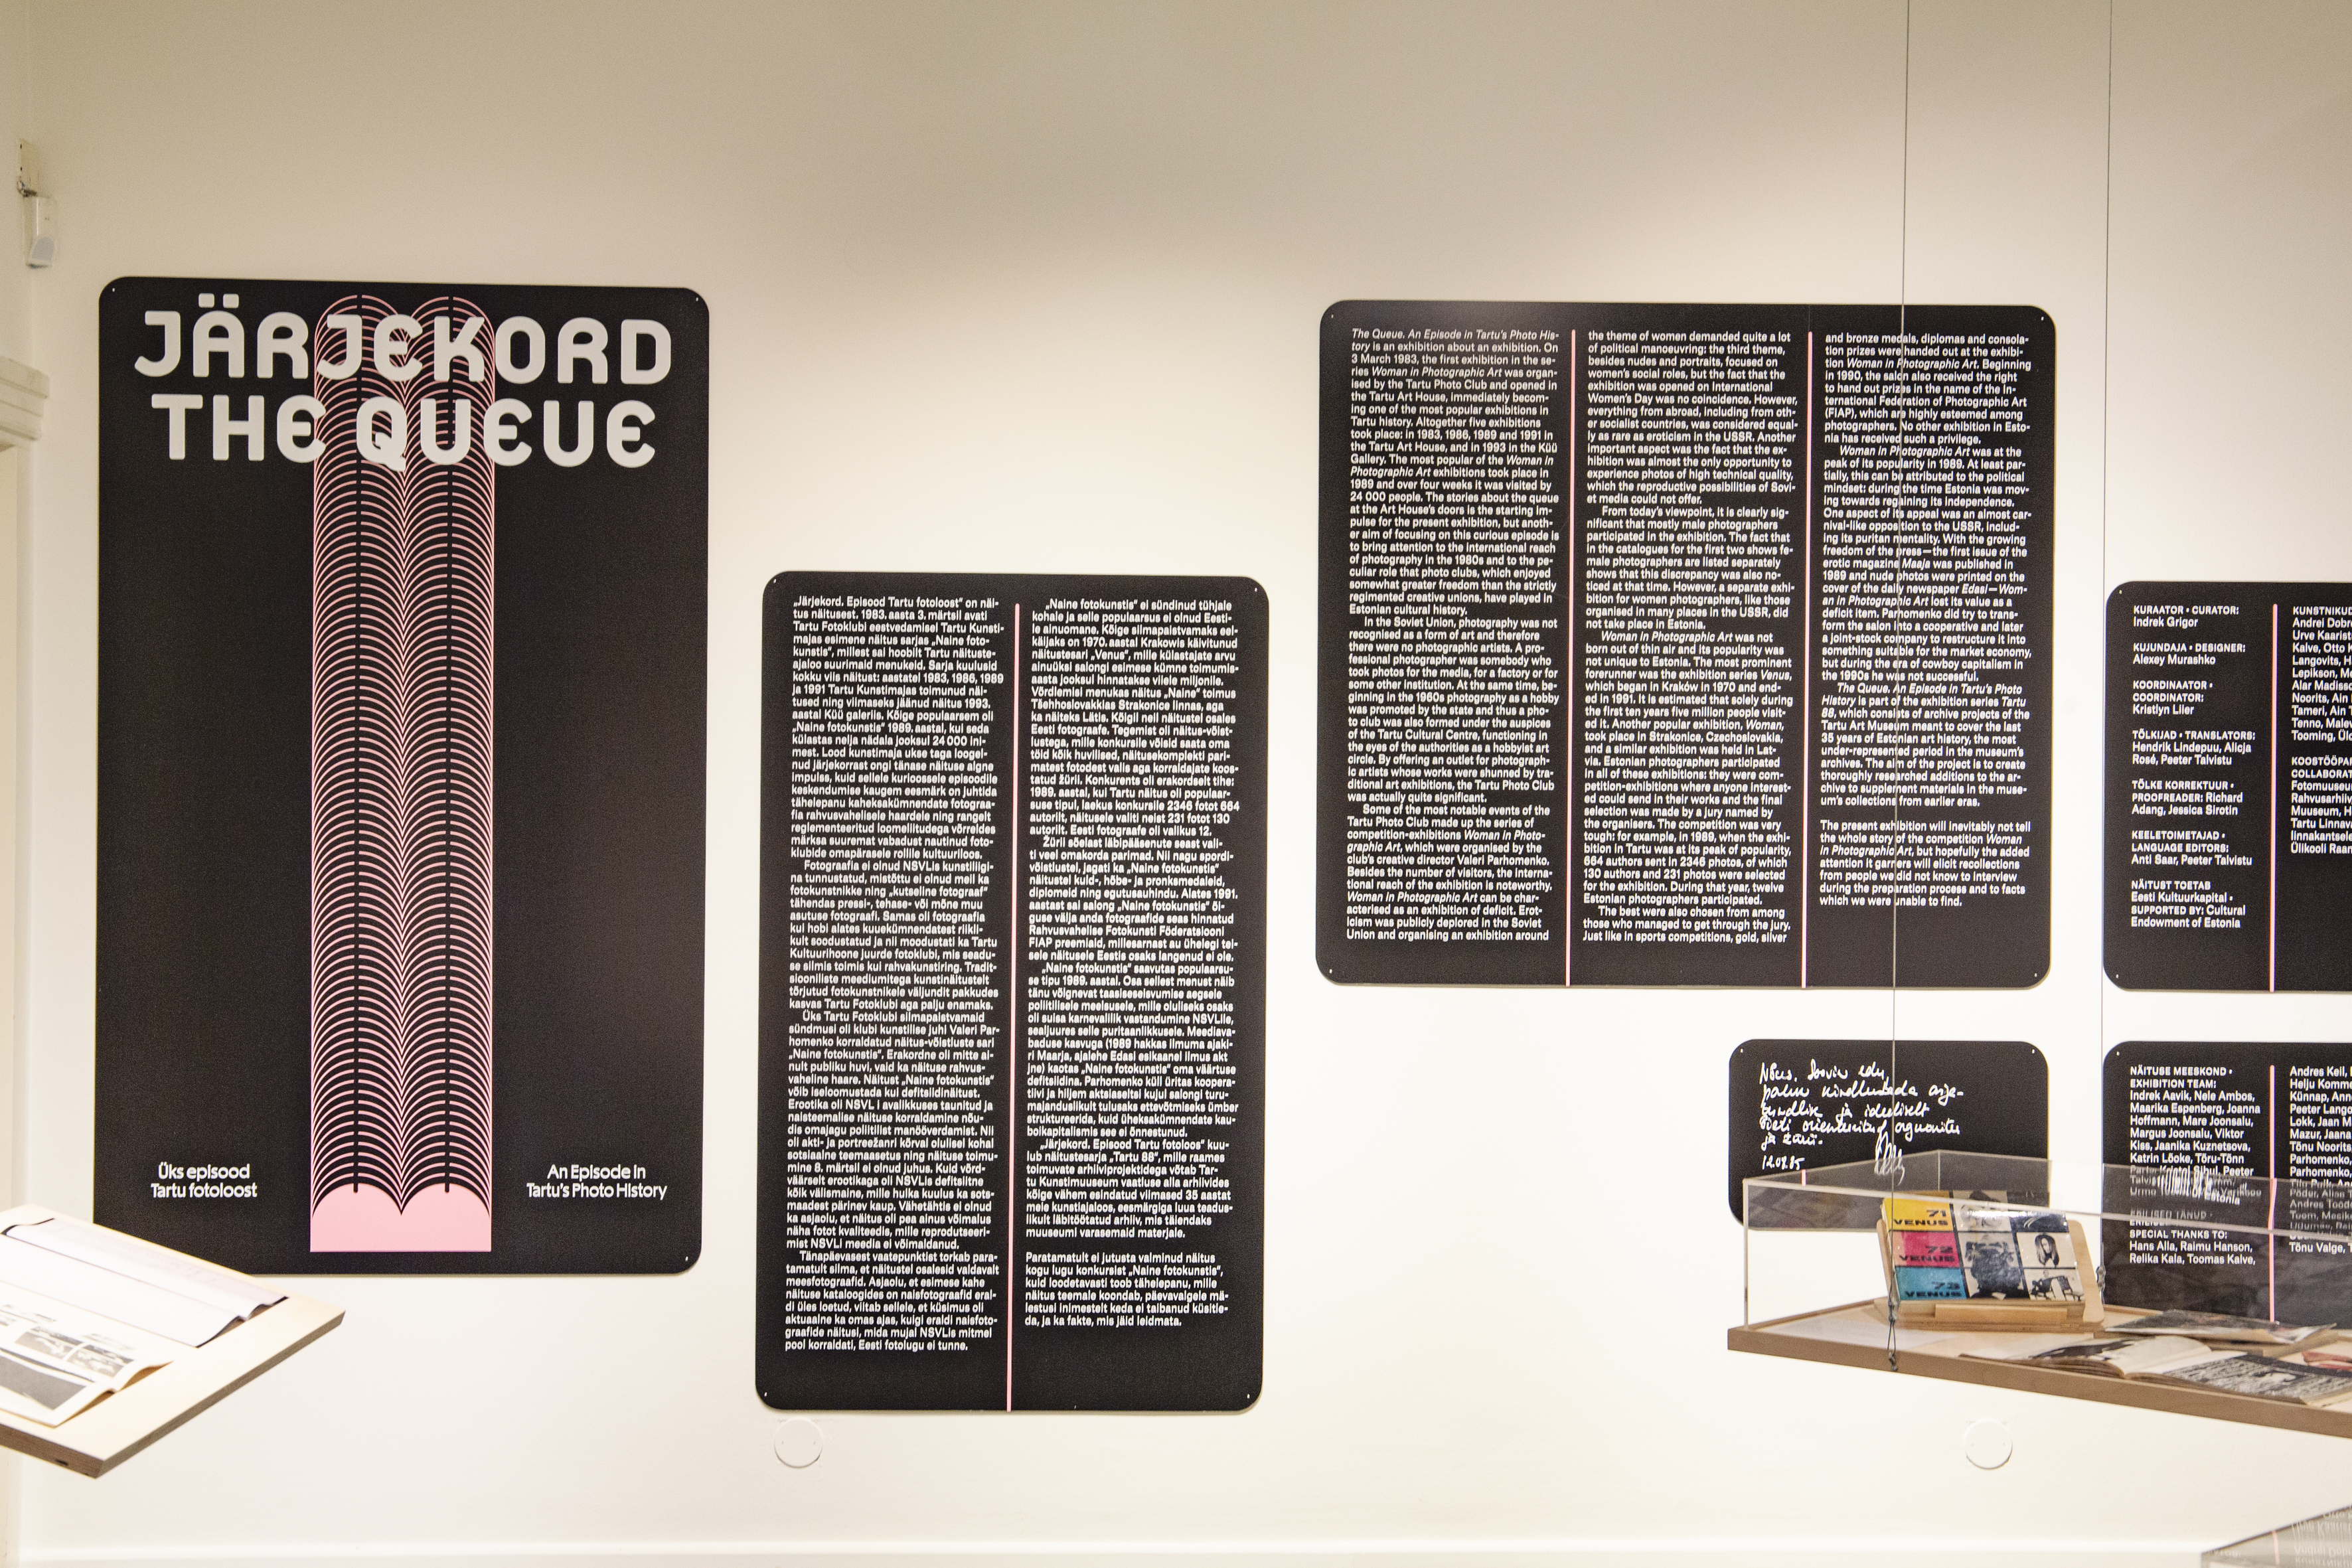 JÄRJEKORD
THE QUEUE
Üks episood
Tartu fotoloost
An Episode in
Tartu's Photo History
„Järjekord. Episood Tartu fotoloost" on näi-
tus näitusest. 1983. aasta 3. märtsil avati
Tartu Fotoklubi eestvedamisel Tartu Kunsti-
majas esimene näitus sarjas „Naine foto-
kunstis", millest sai hoobilt Tartu näituste-
ajaloo suurimaid menukeid. Sarja kuulusid
kokku viis näitust: aastatel 1983, 1986, 1989
ja 1991 Tartu Kunstimajas toimunud näi-
tused ning viimaseks jäänud näitus 1993.
aastal Küü galeriis. Kõige populaarsem oli
„Naine fotokunstis" 1989. aastal, kui seda
külastas nelja nädala jooksul 24 000 ini-
mest. Lood kunstimaja ukse taga looge-
nud järjekorrast ongi tänase näituse algne
impulss, kuid sellele kurioossele episoodile
keskendumise kaugem eesmärk on juhtida
tähelepanu kaheksakümnendate fotograa-
fia rahvusvahelisele haardele ning rangelt
reglementeeritud loomeliitudega võrreldes
märksa suuremat vabadust nautinud foto-
klubide omapärasele rollile kultuuriloos.
Fotograafia ei olnud NSVLis kunstiliigi-
na tunnustatud, mistõttu ei olnud meil ka
fotokunstnikke ning „kutseline fotograaf"
tähendas pressi-, tehase- või mõne muu
asutuse fotograafi. Samas oli fotograafia
kui hobi alates kuuekümnendatest riikli-
kult soodustatud ja nii moodustati ka Tartu
Kultuurihoone juurde fotoklubi, mis seadu-
se silmis toimis kui rahvakunstiring. Tradit-
siooniliste meediumitega kunstinäitustelt
tõrjutud fotokunstnikele väljundit pakkudes
kasvas Tartu Fotoklubi aga palju enamaks.
Üks Tartu Fotoklubi silmapaistvamaid
sündmusi oli klubi kunstilise juhi Valeri Par-
homenko korraldatud näitus-võistluste sari
„Naine fotokunstis". Erakordne oli mitte ai-
nult publiku huvi, vaid ka näituse rahvus-
vaheline haare. Näitust „Naine fotokunstis"
võib iseloomustada kui defitsiidinäitust.
Erootika oli NSVL i avalikkuses taunitud ja
naisteemalise näituse korraldamine nõu-
dis omajagu poliitilist manööverdamist. Nii
oli akti- ja portreežanri kõrval olulisel kohal
sotsiaalne teemaasetus ning näituse toimu-
mine 8. märtsil ei olnud juhus. Kuid võrd-
väärselt erootikaga oli NSVLis defitsiitne
kõik välismaine, mille hulka kuulus ka sots-
maadest pärinev kaup. Vähetähtis ei olnud
ka asjaolu, et näitus oli pea ainus võimalus
näha fotot kvaliteedis, mille reprodutseeri-
mist NSVLi meedia ei võimaldanud.
Tänapäevasest vaatepunktist torkab para-
tamatult silma, et näitustel osalesid valdavalt
meesfotograafid. Asjaolu, et esimese kahe
näituse kataloogides on naisfotograafid eral-
di üles loetud, viitab sellele, et küsimus oli
aktuaalne ka omas ajas, kuigi eraldi naisfoto-
graafide näitusi, mida mujal NSVLis mitmel
pool korraldati, Eesti fotolugu ei tunne.
„Naine fotokunstis" ei sündinud tühjale
kohale ja selle populaarsus ei olnud Eesti-
le ainuomane. Kõige silmapaistvamaks eel-
käijaks on 1970. aastal Krakowis käivitunud
näitustesari „Venus", mille külastajate arvu
ainuüksi salongi esimese kümne toimumis-
aasta jooksul hinnatakse viiele miljonile.
Võrdlemisi menukas näitus „Naine" toimus
Tšehhoslovakkias Strakonice linnas, aga
ka näiteks Lätis. Kõigil neil näitustel osales
Eesti fotograafe. Tegemist oli näitus-võist-
lustega, mille konkursile võisid saata oma
töid kõik huvilised, näitusekomplekti pari-
matest fotodest valis aga korraldajate koos-
tatud žürii. Konkurents oli erakordselt tihe:
1989. aastal, kui Tartu näitus oli populaar-
suse tipul, laekus konkursile 2346 fotot 664
autorilt, näitusele valiti neist 231 fotot 130
autorilt. Eesti fotograafe oli valikus 12.
Žürii sõelast läbipääsenute seast vali-
ti veel omakorda parimad. Nii nagu spordi-
võistlustel, jagati ka „Naine fotokunstis"
näitustel kuld-, hõbe- ja pronksmedaleid,
diplomeid ning egutusauhindu. Alates 1991.
aastast sai salong „Naine fotokunstis" õi-
guse välja anda fotograafide seas hinnatud
Rahvusvahelise Fotokunsti Föderatsiooni
FIAP preemiaid, millesarnast au ühelegi tei-
sele näitusele Eestis osaks langenud ei ole.
„Naine fotokunstis" saavutas populaarsu-
se tipu 1989. aastal. Osa sellest menust näib
tänu võlgnevat taasiseseisvumise aegsele
poliitilisele meelsusele, mille oluliseks osaks
oli suisa karnevallik vastandumine NSVLile,
sealjuures selle puritaanlikkusele. Meediava-
baduse kasvuga (1989 hakkas ilmuma ajaki-
ri Maarja, ajalehe Edasi esikaanel ilmus akt
jne) kaotas „Naine fotokunstis" oma väärtuse
defitsiidina. Parhomenko küll üritas koopera-
tiivi ja hiljem aktsiaseltsi kujul salongi turu-
majanduslikult tulusaks ettevõtmiseks ümber
struktureerida, kuid üheksakümnendate kau-
boikapitalismis see ei õnnestunud.
„Järjekord. Episood Tartu fotoloos" kuu-
lub näitustesarja „Tartu 88", mille raames
toimuvate arhiiviprojektidega võtab Tar-
tu Kunstimuuseum vaatluse alla arhiivides
kõige vähem esindatud viimased 35 aastat
meie kunstiajaloos, eesmärgiga luua teadus-
likult läbitöötatud arhiiv, mis täiendaks
muuseumi varasemaid materjale.
Paratamatult ei jutusta valminud näitus
kogu lugu konkursist „Naine fotokunstis",
kuid loodetavasti toob tähelepanu, mille
näitus teemale koondab, päevavalgele mä-
lestusi inimestelt keda ei taibanud küsitle-
da, ja ka fakte, mis jäid leidmata.
The Queue. An Episode in Tartu's Photo His-
tory is an exhibition about an exhibition. On
3 March 1983, the first exhibition in the se-
ries Woman in Photographic Art was organ-
ised by the Tartu Photo Club and opened in
the Tartu Art House, immediately becom-
ing one of the most popular exhibitions in
Tartu history. Altogether five exhibitions
took place: in 1983, 1986, 1989 and 1991 in
the Tartu Art House, and in 1993 in the Küü
Gallery. The most popular of the Woman in
Photographic Art exhibitions took place in
1989 and over four weeks it was visited by
24 000 people. The stories about the queue
at the Art House's doors is the starting im-
pulse for the present exhibition, but anoth-
er aim of focusing on this curious episode is
to bring attention to the international reach
of photography in the 1980s and to the pe-
culiar role that photo clubs, which enjoyed
somewhat greater freedom than the strictly
regimented creative unions, have played in
Estonian cultural history.
In the Soviet Union, photography was not
recognised as a form of art and therefore
there were no photographic artists. A pro-
fessional photographer was somebody who
took photos for the media, for a factory or for
some other institution. At the same time, be-
ginning in the 1960s photography as a hobby
was promoted by the state and thus a pho-
to club was also formed under the auspices
of the Tartu Cultural Centre, functioning in
the eyes of the authorities as a hobbyist art
circle. By offering an outlet for photograph-
ic artists whose works were shunned by tra-
ditional art exhibitions, the Tartu Photo Club
was actually quite significant.
Some of the most notable events of the
Tartu Photo Club made up the series of
competition-exhibitions Woman in Photo-
graphic Art, which were organised by the
club's creative director Valeri Parhomenko.
Besides the number of visitors, the interna-
tional reach of the exhibition is noteworthy.
Woman in Photographic Art can be char-
acterised as an exhibition of deficit. Erot-
icism was publicly deplored in the Soviet
Union and organising an exhibition around
the theme of women demanded quite a lot
of political manoeuvring: the third theme,
besides nudes and portraits, focused on
women's social roles, but the fact that the
exhibition was opened on International
Women's Day was no coincidence. However,
everything from abroad, including from oth-
er socialist countries, was considered equal-
ly as rare as eroticism in the USSR. Another
important aspect was the fact that the ex-
hibition was almost the only opportunity to
experience photos of high technical quality,
which the reproductive possibilities of Sovi-
et media could not offer.
From today's viewpoint, it is clearly sig-
nificant that mostly male photographers
participated in the exhibition. The fact that
in the catalogues for the first two shows fe-
male photographers are listed separately
shows that this discrepancy was also no-
ticed at that time. However, a separate exhi-
bition for women photographers, like those
organised in many places in the USSR, did
not take place in Estonia.
Woman in Photographic Art was not
born out of thin air and its popularity was
not unique to Estonia. The most prominent
forerunner was the exhibition series Venus,
which began in Kraków in 1970 and end-
ed in 1991. It is estimated that solely during
the first ten years five million people visit-
ed it. Another popular exhibition, Woman,
took place in Strakonice, Czechoslovakia,
and a similar exhibition was held in Lat-
via. Estonian photographers participated
in all of these exhibitions: they were com-
petition-exhibitions where anyone interest-
ed could send in their works and the final
selection was made by a jury named by
the organisers. The competition was very
tough: for example, in 1989, when the exhi-
bition in Tartu was at its peak of popularity,
664 authors sent in 2346 photos, of which
130 authors and 231 photos were selected
for the exhibition. During that year, twelve
Estonian photographers participated.
The best were also chosen from among
those who managed to get through the jury.
Just like in sports competitions, gold, silver
and bronze medals, diplomas and consola-
tion prizes were handed out at the exhibi-
tion Woman in Photographic Art. Beginning
in 1990, the salon also received the right
to hand out prizes in the name of the In-
ternational Federation of Photographic Art
(FIAP), which are highly esteemed among
photographers. No other exhibition in Esto-
nia has received such a privilege.
Woman in Photographic Art was at the
peak of its popularity in 1989. At least par-
tially, this can be attributed to the political
mindset: during the time Estonia was mov-
ing towards regaining its independence.
One aspect of its appeal was an almost car-
nival-like opposition to the USSR, includ-
ing its puritan mentality. With the growing
freedom of the press—the first issue of the
erotic magazine Maaja was published in
1989 and nude photos were printed on the
cover of the daily newspaper Edasi—Wom-
an in Photographic Art lost its value as a
deficit item. Parhomenko did try to trans-
form the salon into a cooperative and later
a joint-stock company to restructure it into
something suitable for the market economy,
but during the era of cowboy capitalism in
the 1990s he was not successful.
The Queue. An Episode in Tartu's Photo
History is part of the exhibition series Tartu
88, which consists of archive projects of the
Tartu Art Museum meant to cover the last
35 years of Estonian art history, the most
under-represented period in the museum's
archives. The aim of the project is to create
thoroughly researched additions to the ar-
chive to supplement materials in the muse-
um's collections from earlier eras.
The present exhibition will inevitably not tell
the whole story of the competition Woman
in Photographic Art, but hopefully the added
attention it garners will elicit recollections
from people we did not know to interview
during the preparation process and to facts
which we were unable to find.
KURAATOR • CURATOR:
Indrek Grigor
KUJUNDAJA • DESIGNER:
Alexey Murashko
KOORDINAATOR •
COORDINATOR:
Kristlyn Liier
TÕLKIJAD • TRANSLATORS:
Hendrik Lindepuu, Alicja
Rosé, Peeter Talvistu
TÕLKE KORREKTUUR •
PROOFREADER: Richard
Adang, Jessica Sirotin
KEELETOIMETAJAD •
LANGUAGE EDITORS:
Anti Saar, Peeter Talvistu
NÄITUST TOETAB
Eesti Kultuurkapital •
SUPPORTED BY: Cultural
Endowment of Estonia
Urve
Kalve, Otto
Langovits,
Alar
Noorits, Ain
Tameri, Ain
Tenno,
Tooming,
Tartu
Ülikooli
12.09.85
NÄITUSE MEESKOND •
EXHIBITION TEAM:
Indrek Aavik, Nele Ambos,
Maarika Espenberg, Joanna
Hoffmann, Mare Joonsalu,
Margus Joonsalu, Viktor
Kiss, Jaanika Kuznetsova,
Katrin Lõoke, Tõru-Tõnn
SPECIAL THANKS TO:
Hans Alla, Raimu Hanson,
Relika Kala, Toomas Kalve,
Andres Keil,
Helju
Künnap,
Peeter
Lokk, Jaan
Mazur, Jaana
Tõnu Noorits,
Parhomenko,
Tõnu Valge,
71
VENUS
72
VENUS
73
VENUS